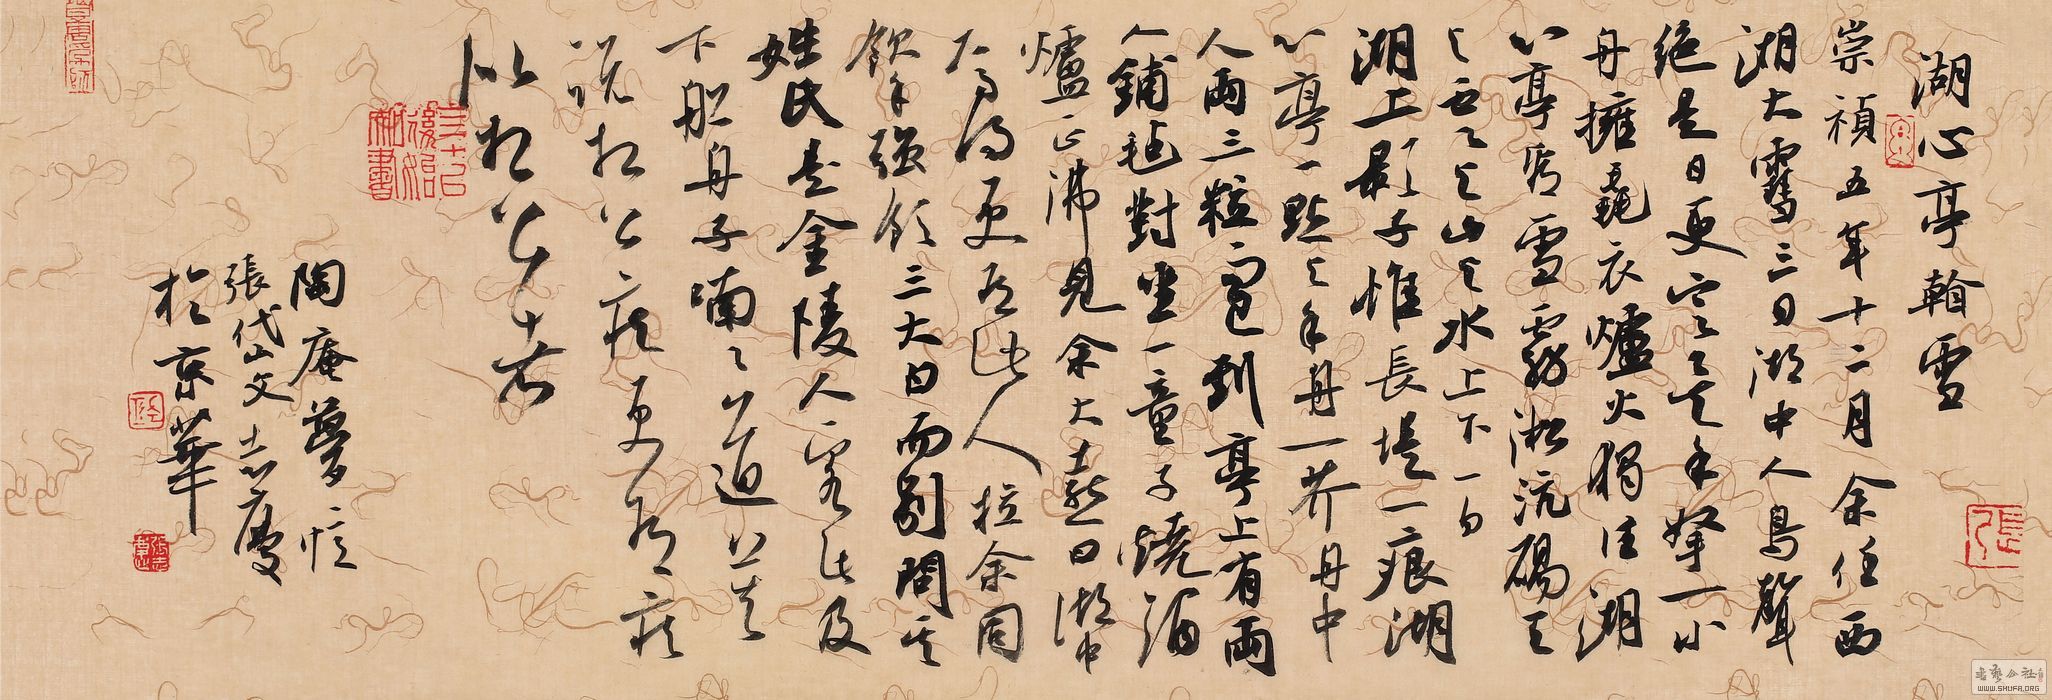 湖心亭看雪
崇禎五年十二月余住西
湖大雪三日湖中人鳥聲
絕是日更定矣余拏一小
舟擁毳衣爐火獨往湖
心亭看雪霧凇沆碭天
与云与山与水上下一白
湖上影子惟長堤一痕湖
心亭一點与余舟一芥舟中
人兩三粒而已到亭上有兩
人鋪氈對坐一童子燒酒
爐正沸見余大喜曰湖中
焉得更有此人拉余同
飲余強飲三大白而別問其
姓氏是金陵人客此及
下船舟子喃々曰莫
說相公癡更有癡
似相公者
陶庵夢憶
張岱文志慶
於京華
書藝公社
WWW.SHUFA.ORG